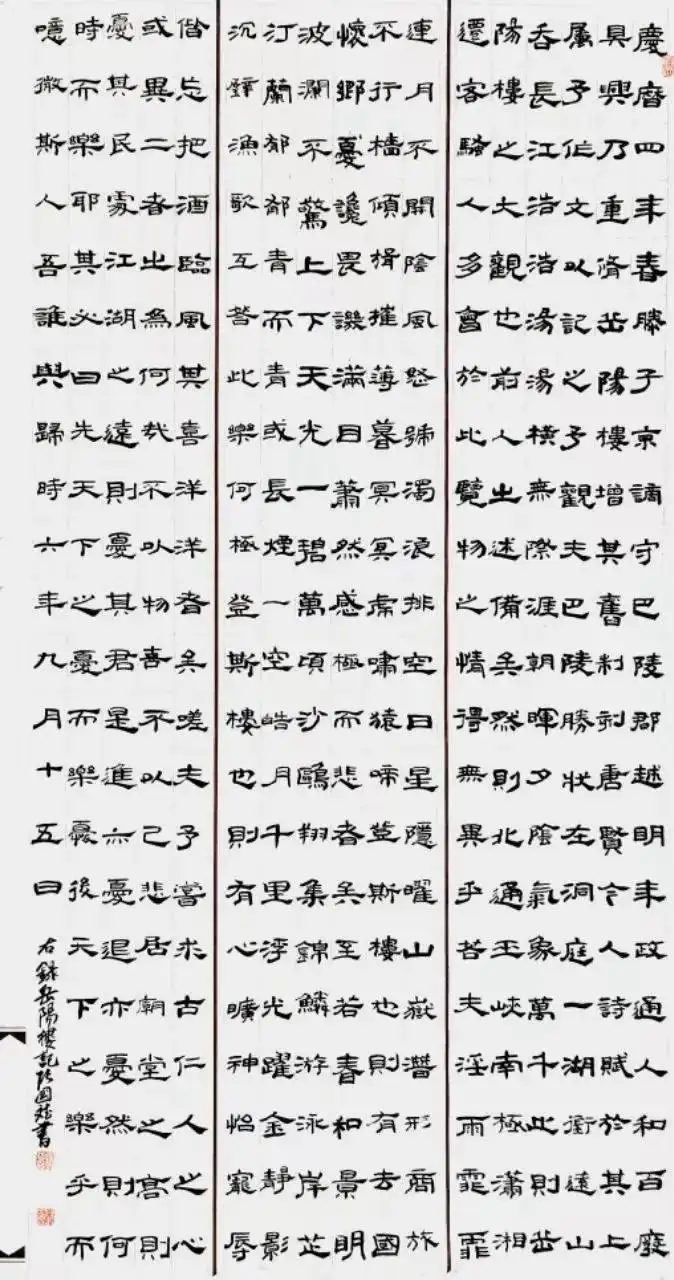 慶曆四年春滕子京謫守巴陵郡越明年政通人和百廢
具興乃重脩岳陽樓增其舊制刻唐賢今人詩賦於其上
属予作文以記之予觀夫巴陵勝狀在洞庭一湖銜遠山
吞長江浩浩湯湯橫無際涯朝暉夕陰氣象萬千此則岳
陽樓之大觀也前人之述備矣然則北通巫峽南極瀟湘
遷客騷人多會於此覽物之情得無異乎若夫淫雨霏霏
連月不開陰風怒號濁浪排空日星隱曜山嶽潛形商旅
不行檣傾楫摧薄暮冥冥虎嘯猿啼登斯樓也則有去國
懷鄉憂讒畏譏滿目蕭然感極而悲者矣至若春和景明
波瀾不驚上下天光一碧萬頃沙鷗翔集錦鱗游泳岸芷
汀蘭郁郁青而青或長煙一空皓月千里浮光躍金靜影
沉璧漁歌互答此樂何極登斯樓也則有心曠神怡寵辱
偕忘把酒臨風其喜洋洋者矣嗟夫予嘗求古仁人之心
或異二者之為何哉不以物喜不以己悲居朝堂之高則
憂其民處江湖之遠則憂其君是進亦憂退亦憂然則何
時而樂耶其必曰先天下之憂而樂憂後天下之樂乎而
噫微斯人吾誰與歸時六年九月十五日
右錄岳陽樓記張国書